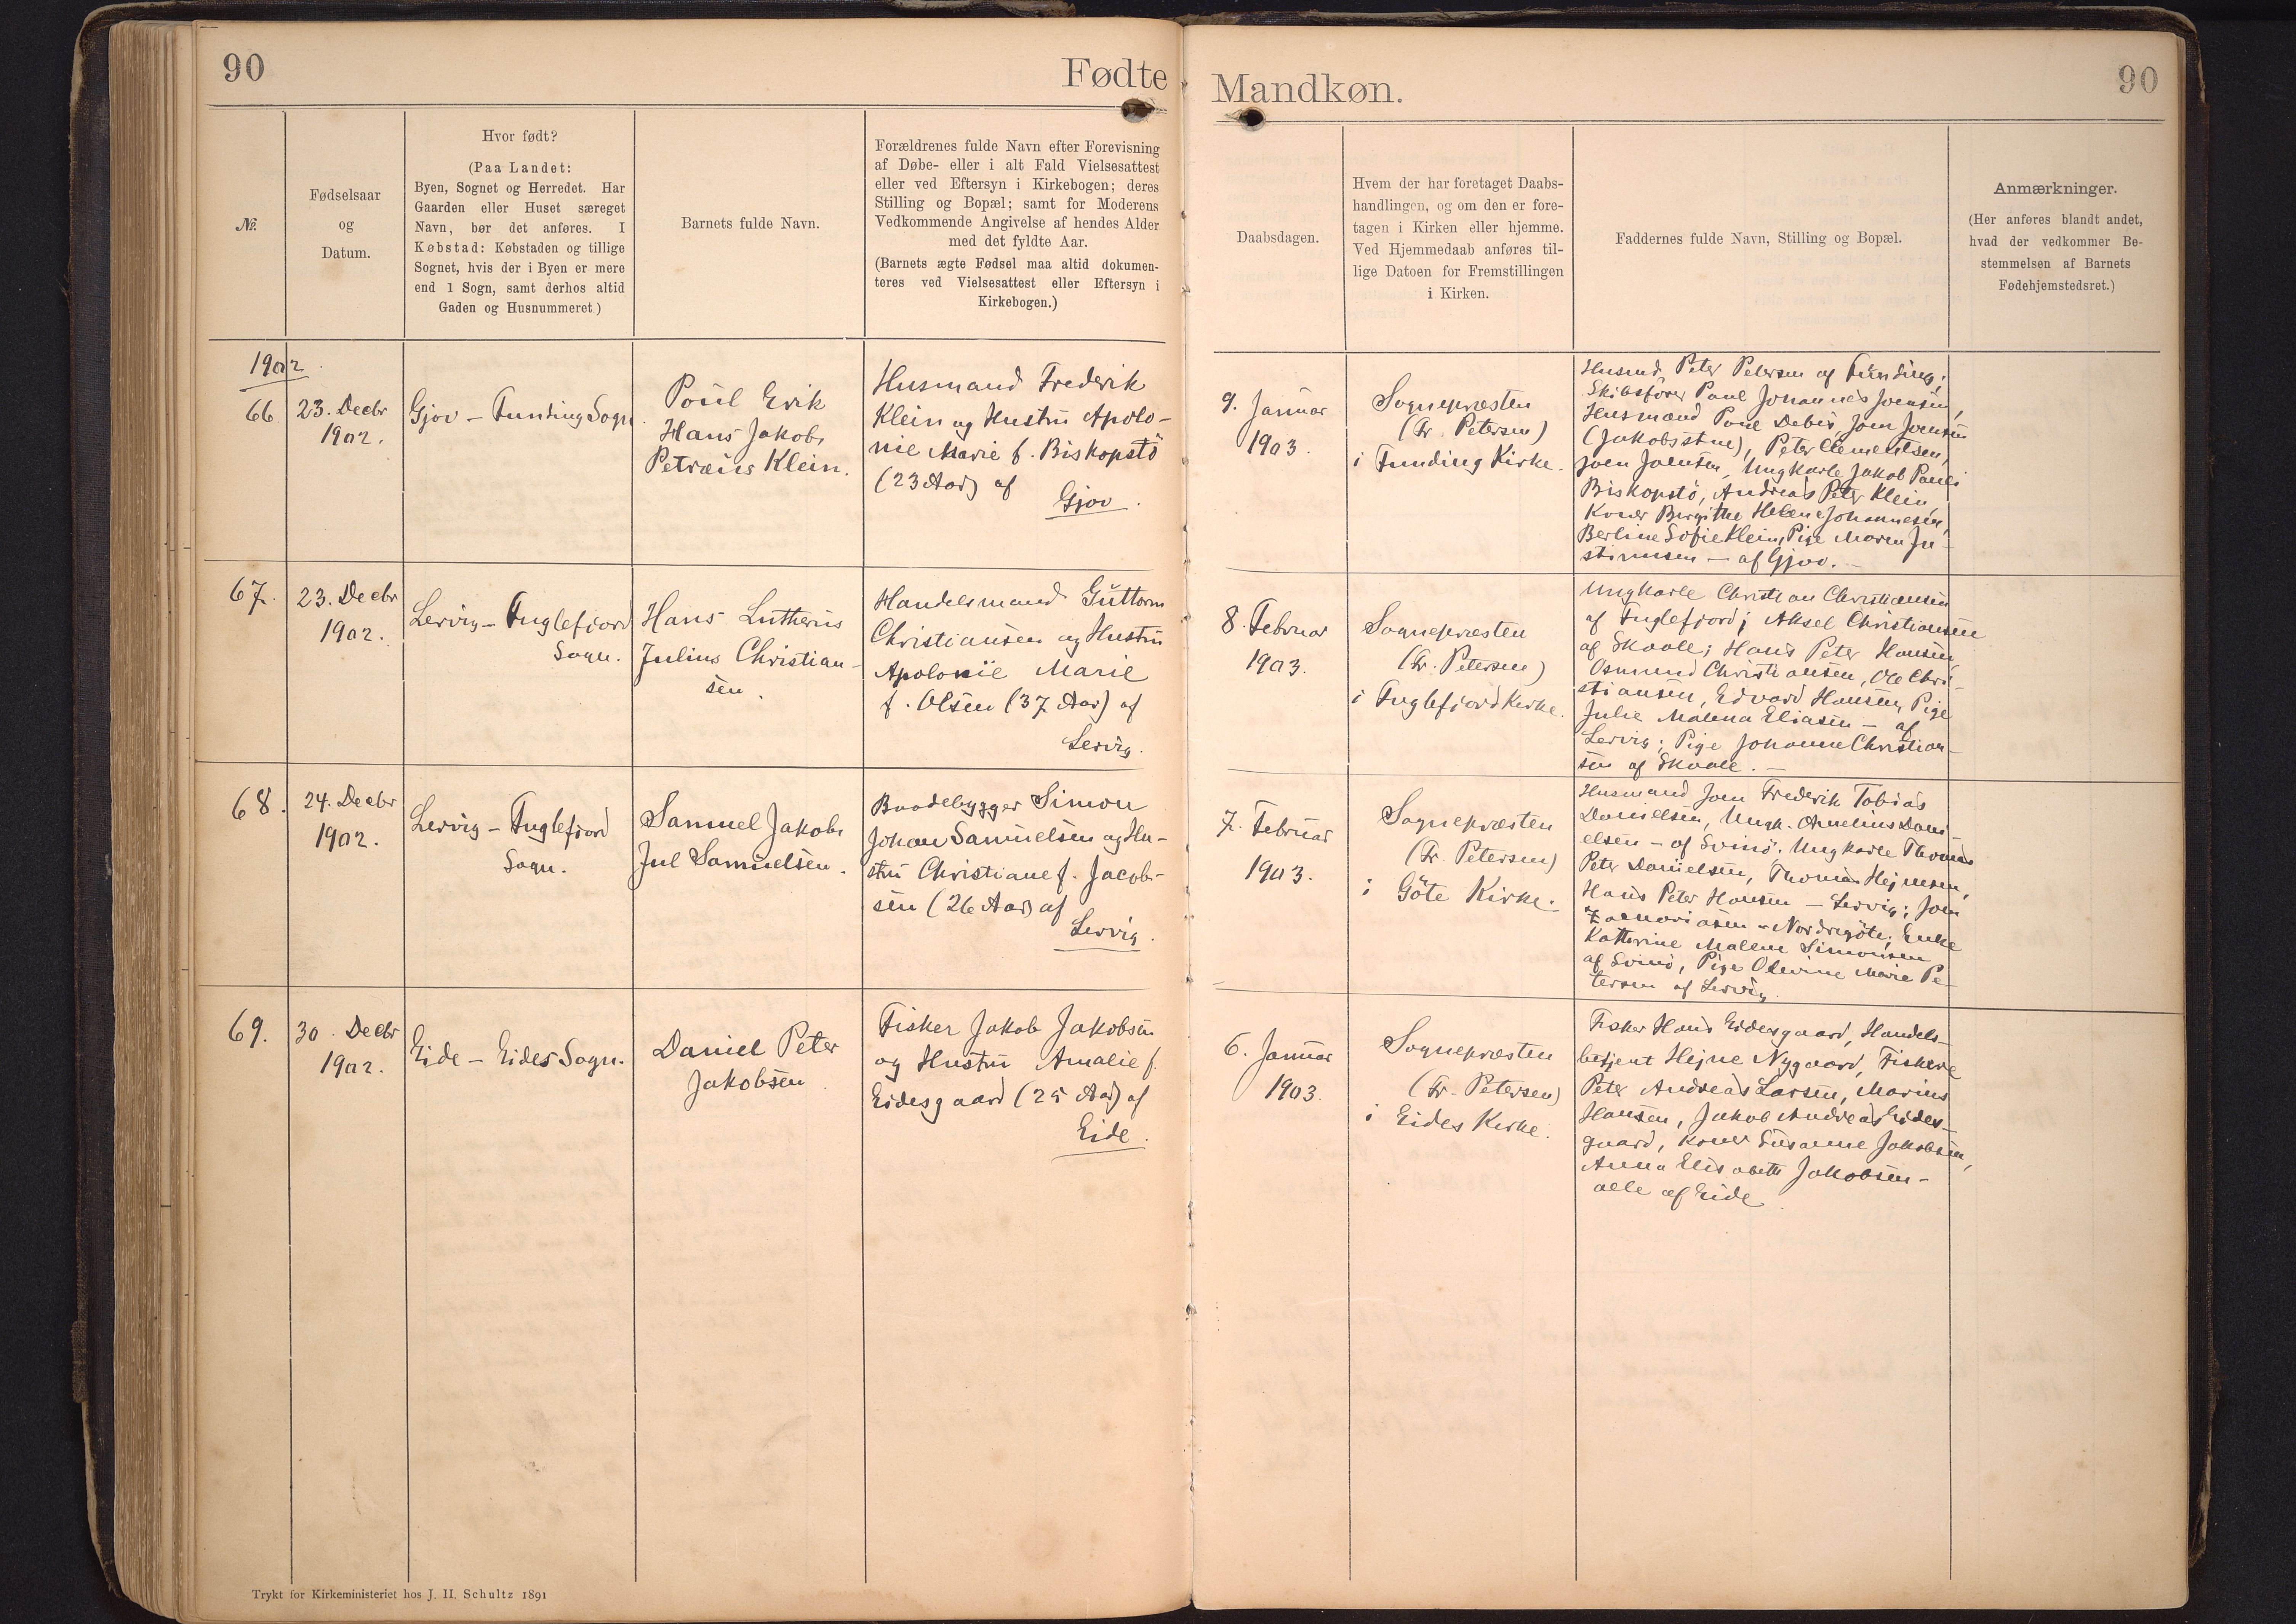 90
Fødte
Mandkøn.
90
№.
Fødselsaar
og
Datum.
Hvor født?
(Paa Landet:
Byen, Sognet og Herredet. Har
Gaarden eller Huset særeget
Navn, bør det anføres. I
Købstad: Købstaden og tillige
Sognet, hvis der i Byen er mere
end 1 Sogn, samt derhos altid
Gaden og Husnummeret)
Barnets fulde Navn.
Forældrenes fulde Navn efter Forevisning
af Døbe- eller i alt Fald Vielsesattest
eller ved Eftersyn i Kirkebogen; deres
Stilling og Bopæl; samt for Moderens
Vedkommende Angivelse af hendes Alder
med det fyldte Aar.
(Barnets ægte Fødsel maa altid dokumen-
teres ved Vielsesattest eller Eftersyn i
Kirkebogen.)
Daabsdagen.
Hvem der har foretaget Daabs-
handlingen, og om den er fore-
tagen i Kirken eller hjemme.
Ved Hjemmedaab anføres til-
lige Datoen for Fremstillingen
i Kirken.
Faddernes fulde Navn, Stilling og Bopæl.
Anmærkninger.
(Her anføres blandt andet,
hvad der vedkommer Be-
stemmelsen af Barnets
Fødehjemstedsret.)
1902
66
23. Decbr
1902.
Gjov - Funding Sogn
Poul Erik
Hans Jakob
Petræus Klein.
Husmand Frederik
Klein og Hustru Apolo-
nie Marie f. Biskopstö
(23 Aar) af
Gjov.
9. Januar
1903.
Sognepræsten
(Fr. Petersen)
i Funding Kirke.
Husmd Peter Petersen af Funding;
Skibsfører Poul Johannes Joensen,
Husmænd Poul Debes, Joen Joensen
(Jakobsstue), Peter Clementsen,
Joen Joensen, Ungkarle Jakob Pauli
Biskopstö, Andreas Peter Klein,
Koner Birgithe Helene Johannesen,
Berline Sofie Klein, Pige Maren Ju-
stinussen - af Gjov. -
67.
23. Decbr
1902.
Lervig - Fuglefjord
Sogn.
Hans Lutherus
Julius Christian-
sen.
Handelsmand Guttorm
Christiansen og Hustru
Apolonie Marie
f. Olsen (37 Aar) af
Lervig.
8. Februar
1903.
Sognepræsten
(Fr. Petersen)
i Fuglefjord Kirke.
Ungkarle Christian Christiansen
af Fuglefjord; Aksel Christiansen
af Skaale; Hans Peter Hansen,
Osmund Christiansen, Ole Chri-
stiansen, Edvard Hansen, Pige
Julie Malena Eliasen - af
Lervig; Pige Johanne Christian-
sen af Skaale. -
68.
24. Decbr
1902.
Lervig - Fuglefjord
Sogn.
Samuel Jakob
Jul Samuelsen.
Baadebygger Simon
Johan Samuelsen og Hu-
stru Christiane f. Jacob-
sen (26 Aar) af
Lervig.
7. Februar
1903.
Sognepræsten
(Fr. Petersen)
i Göte Kirke.
Husmand Joen Frederik Tobias
Danielsen, Ungk. Dani-
elsen - af Svinö. Ungkarle Thomas
Peter Danielsen, Thomas Hejnesen,
Hans Peter Hansen - Lervig; Joen
Zacharíasen - Nordregöte; Enke
Katterine Malene Simonsen
af Svinö, Pige Olevine Marie Pe-
tersen af Lervig.
69.
30. Decbr
1902.
Eide - Eides Sogn.
Daniel Peter
Jakobsen
Fisker Jakob Jakobsen
og Hustru Amalie f.
Eidesgaard (25 Aar) af
Eide.
6. Januar
1903.
Sognepræsten
(Fr. Petersen)
i Eides Kirke.
Fisker Hans Eidesgaard, Handels-
betjent Hejne Nygaard, Fiskere
Peter Andreas Larsen, Marius
Hansen, Jakob Andreas Eides-
gaard, Koner Susanne Jakobsen,
Anna Elisabeth Jakobsen -
alle af Eide.
Trykt for Kirkeministeriet hos J. H. Schultz 1891